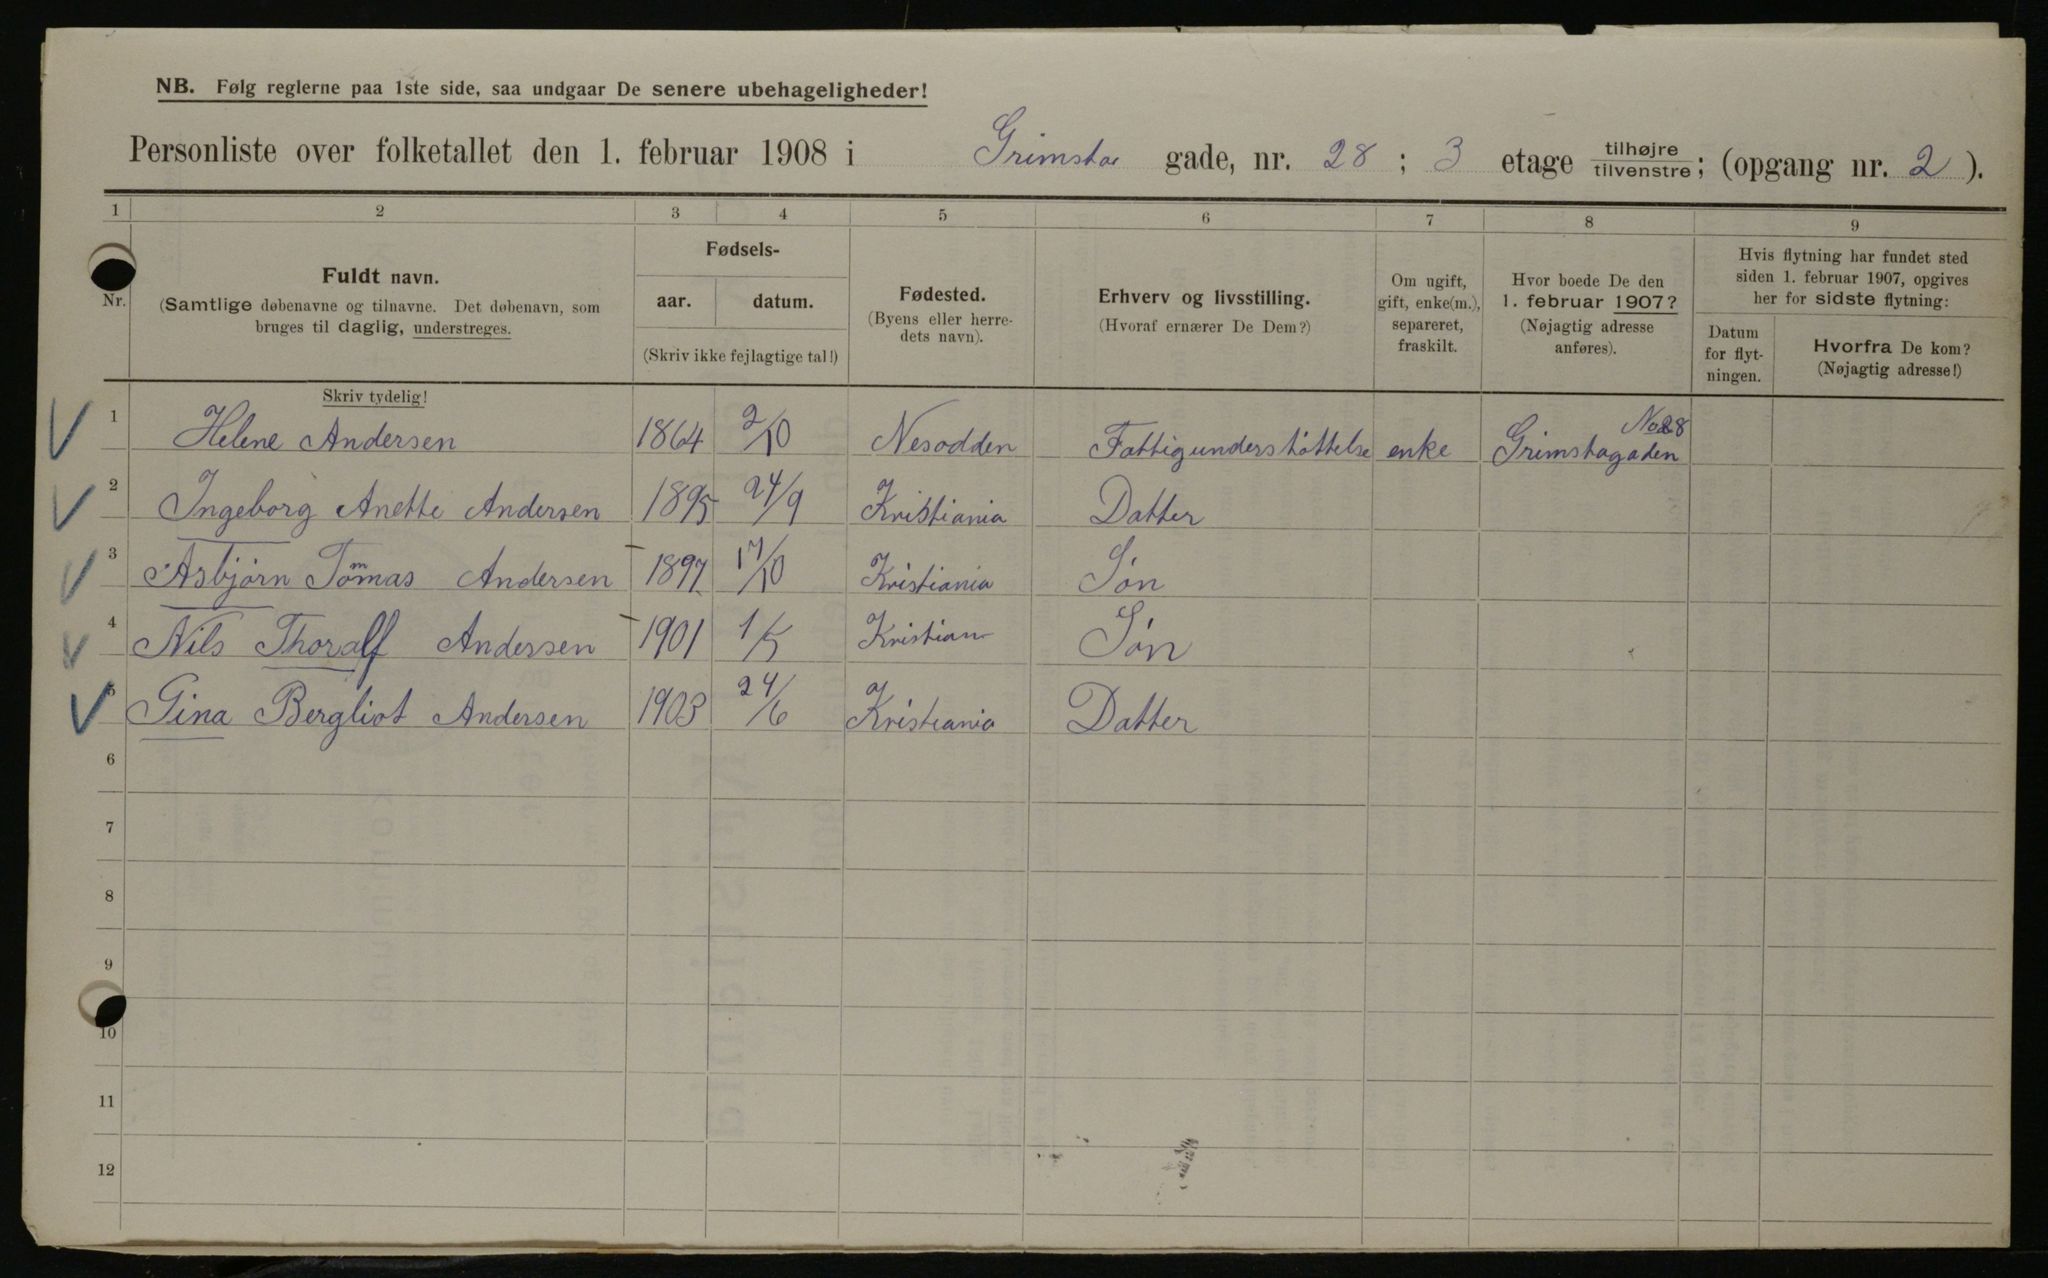 NB. Følg reglerne paa 1ste side, saa undgaar De senere ubehageligheder!
Personliste over folketallet den 1. februar 1908 i Grimsta gade, nr. 28 ; 3 etage tilhøjre / tilvenstre; (opgang nr. 2 ).
1 2 3 4 5 6 7 8 9
Nr.
Fuldt navn.
(Samtlige døbenavne og tilnavne. Det døbenavn, som
bruges til daglig, understreges.
Skriv tydelig!
Fødsels-
aar. datum.
(Skriv ikke fejlagtige tal!)
Fødested.
(Byens eller herre-
dets navn).
Erhverv og livsstilling.
(Hvoraf ernærer De Dem?)
Om ugift,
gift, enke(m.),
separeret,
fraskilt.
Hvor boede De den
1. februar 1907?
(Nøjagtig adresse
anføres).
Hvis flytning har fundet sted
siden 1. februar 1907, opgives
her for sidste flytning:
Datum
for flyt-
ningen.
Hvorfra De kom?
(Nøjagtig adresse!)
1 Helene Andersen 1864 2/10 Nesodden Fattigunderstøttelse enke Grimstagaden No 28
2 Ingeborg Anette Andersen 1895 24/9 Kristiania Datter
3 Asbjørn Tomas Andersen 1897 17/10 Kristiania Søn
4 Nils Thoralf Andersen 1901 1/5 Kristian Søn
5 Gina Bergliot Andersen 1903 24/6 Kristiania Datter
6
7
8
9
10
11
12